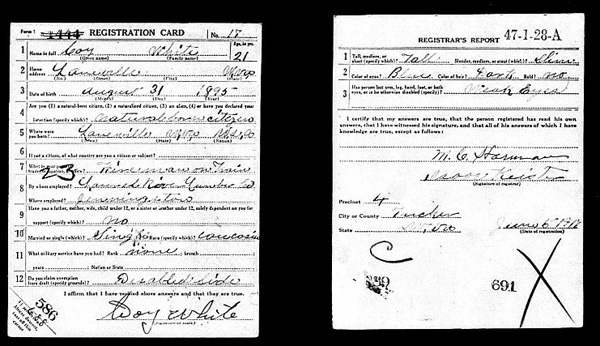 Form 1 1444 REGISTRATION CARD No. 17
1 Name in full Coy White Age, in yrs. 21
(Given name) (Family name)
2 Home address Laneville W Va
(No.) (Street) (City) (State)
3 Date of birth August 31 1895
(Month) (Day) (Year)
4 Are you (1) a natural-born citizen, (2) a naturalized citizen, (3) an alien, (4) or have you declared your
intention (specify which)? Natural born citizen
5 Where were you born? Laneville W Va
(Town) (State) (Nation)
6 If not a citizen, of what country are you a citizen or subject?
7 What is your present trade, occupation, or office? 23 Fireman on Train
8 By whom employed? River Lumber Co
Where employed?
9 Have you a father, mother, wife, child under 12, or a sister or brother under 12, solely dependent on you for
support (specify which)? No
10 Married or single (which)? Single Race (specify which)? Caucasian
11 What military service have you had? Rank none branch
years Nation or State
12 Do you claim exemption from draft (specify grounds)? Disabled Side
I affirm that I have verified above answers and that they are true.
586
Coy White
REGISTRAR'S REPORT 47-1-28-A
1 Tall, medium, or short (specify which)? Tall Slender, medium, or stout (which)? Slim
2 Color of eyes? Blue Color of hair? Dark Bald? No
3 Has person lost arm, leg, hand, foot, or both eyes, or is he otherwise disabled (specify)? Weak Eyes
I certify that my answers are true, that the person registered has read his own
answers, that I have witnessed his signature, and that all of his answers of which I have
knowledge are true, except as follows:
M. C. Harman
(Signature of registrar)
Precinct 4
City or County Tucker
State W Va June 5 1917
(Date of registration)
C
691 X